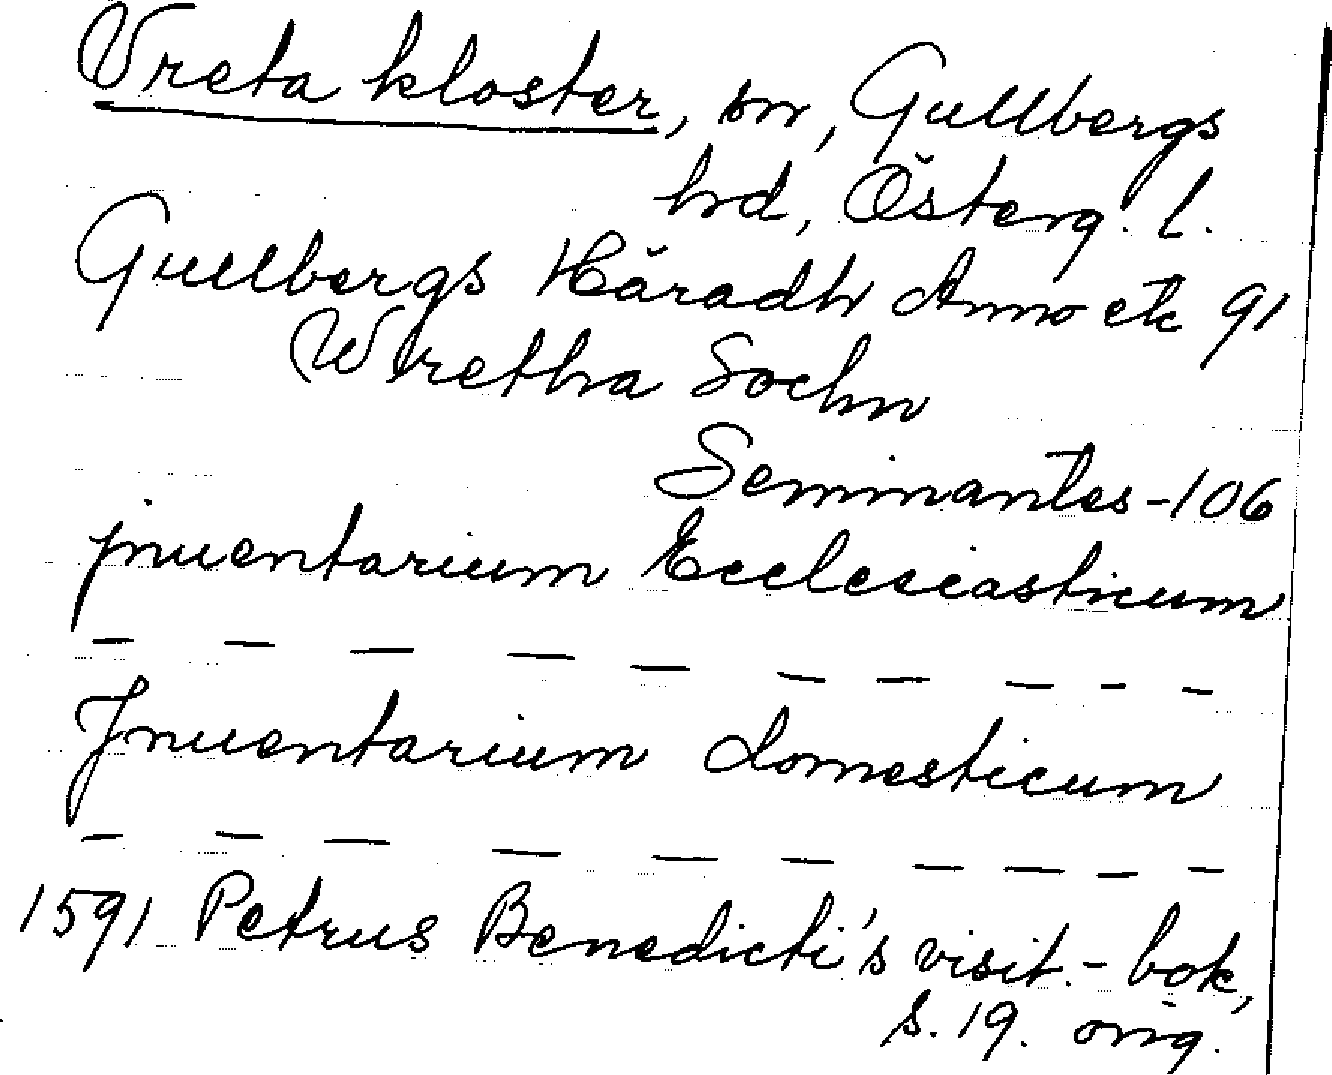 Vreta kloster, sn, Gullbergs
hd, Österg. l.
Gullbergs Häradh Anno etc 91
Wretha Sochn
Seminantes - 106
jnuentarium Ecclesiasticum
— — — — — — — — — —
Jnuentarium domesticum
— — — — — — — — — —
1591 Petrus Benedicti's visit. - bok,
s. 19. orig.